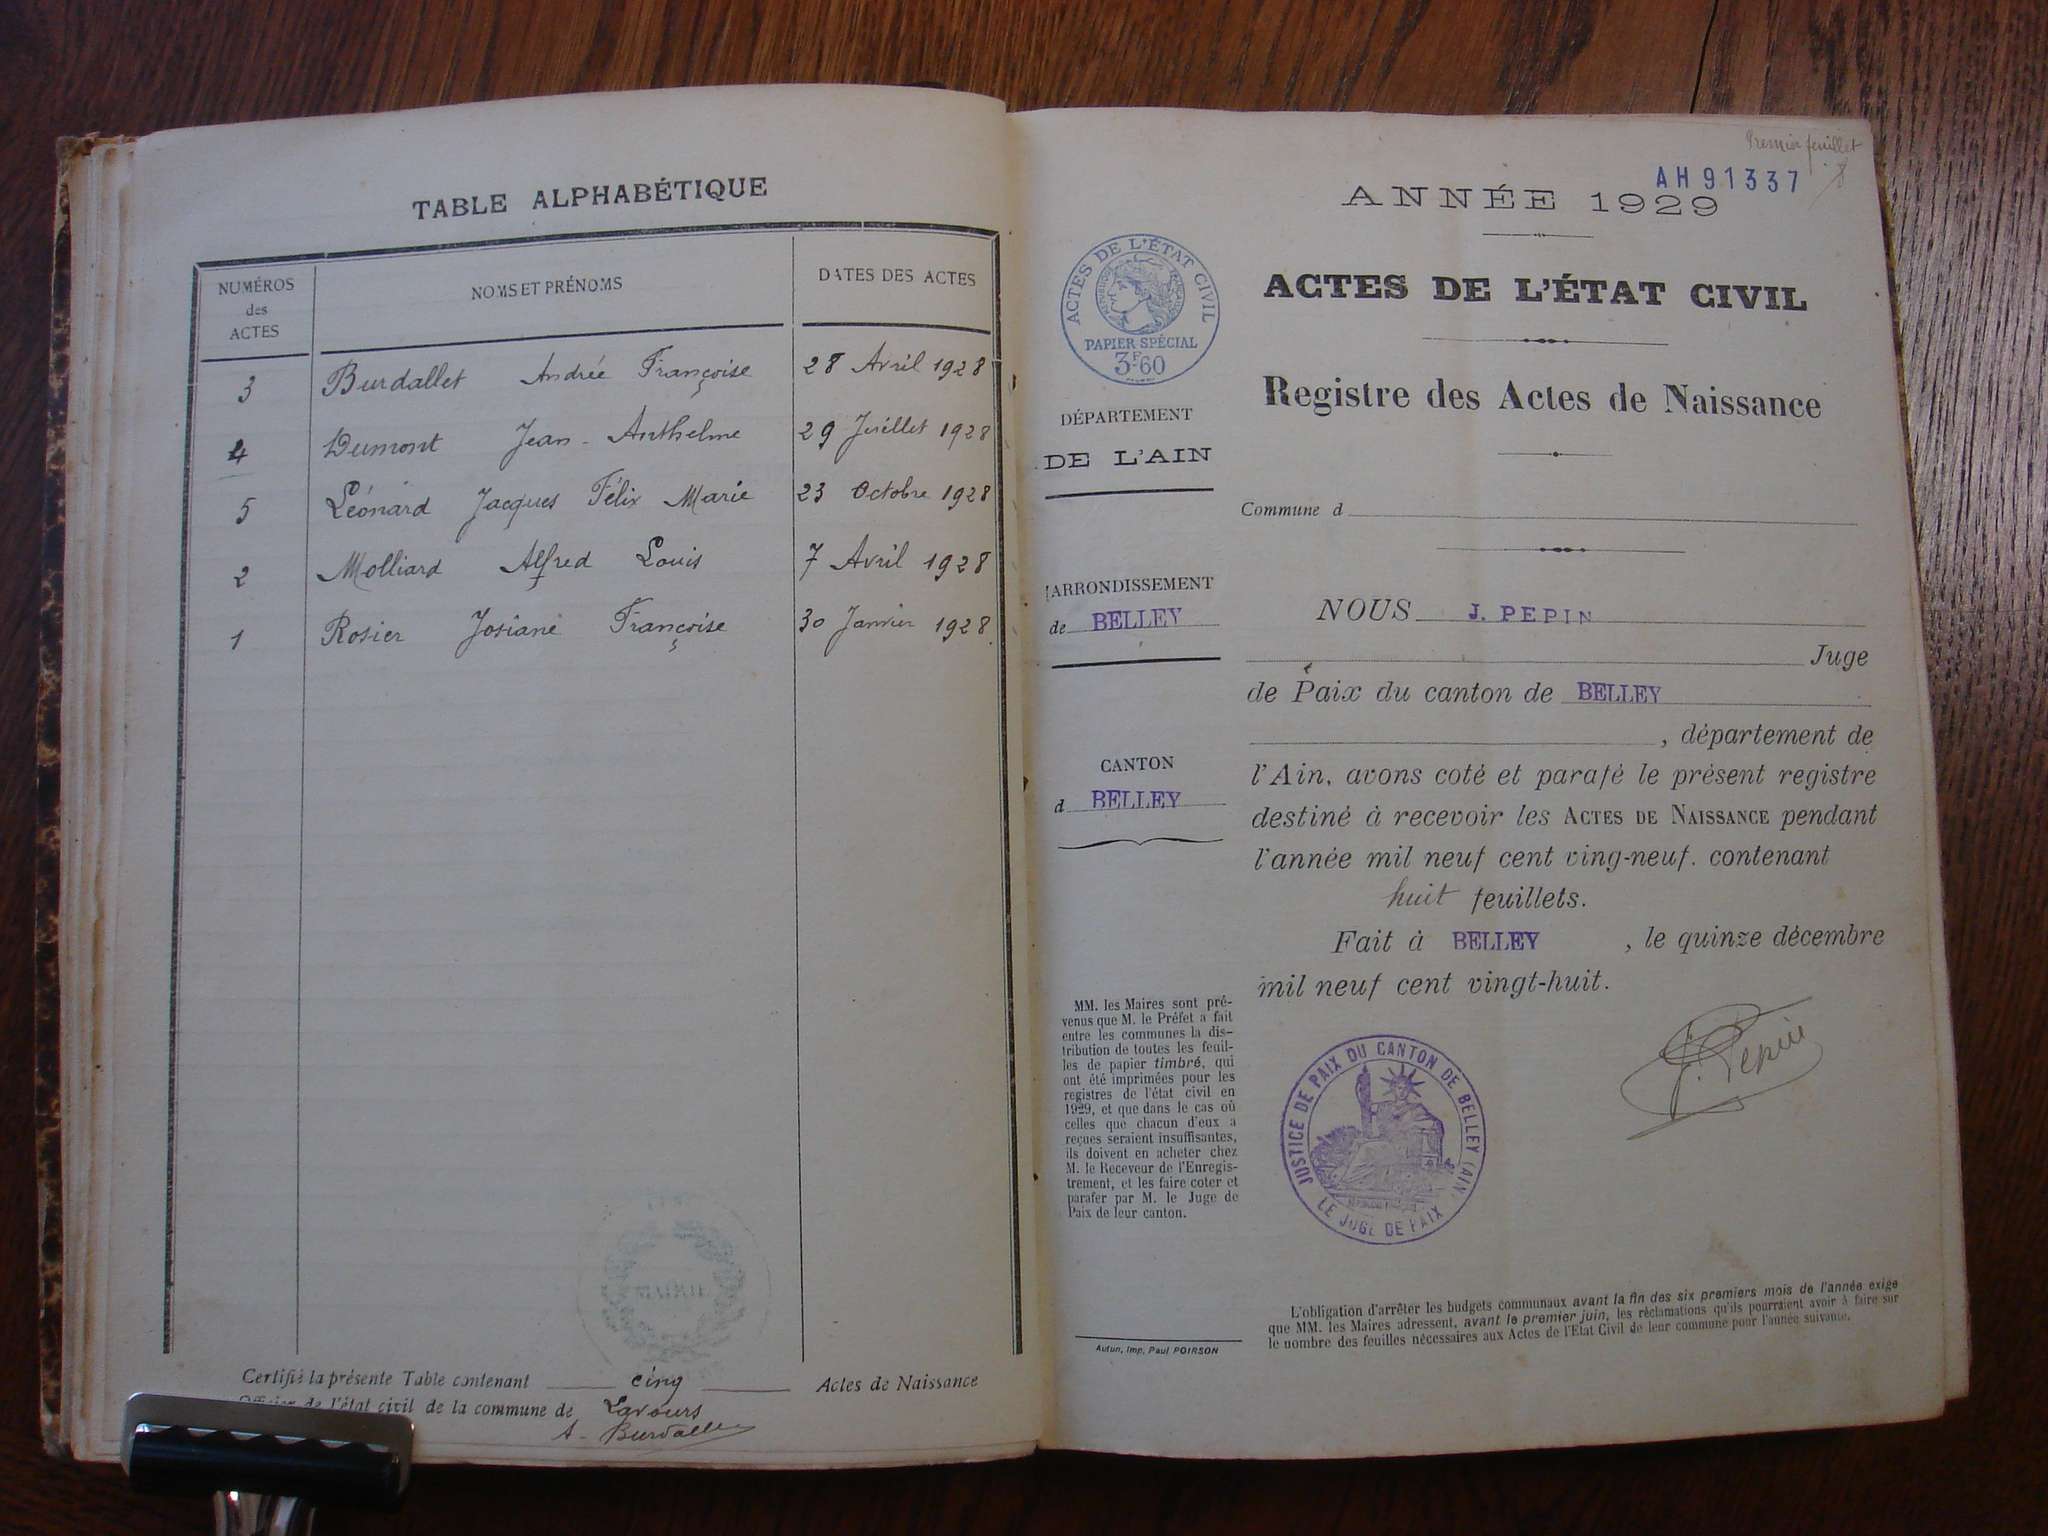 TABLE ALPHABÉTIQUE
NUMÉROS des ACTES NOMS ET PRÉNOMS DATES DES ACTES
3 Burdallet Andrée Françoise 28 Avril 1928
4 Dumont Jean-Anthelme 29 Juillet 1928
5 Léonard Jacques Félix Marie 23 Octobre 1928
2 Molliard Alfred Louis 7 Avril 1928
1 Rosier Josiane Françoise 30 Janvier 1928
MAIRIE
Certifié la présente Table contenant cinq Actes de Naissance
Officier de l'état civil de la commune de Lavours
A. Burdallet
Premier feuillet
AH 91337
ANNÉE 1929
ACTES DE L'ÉTAT CIVIL
PAPIER SPÉCIAL
3F60
ACTES DE L'ÉTAT CIVIL
Registre des Actes de Naissance
DÉPARTEMENT
DE L'AIN
Commune d
ARRONDISSEMENT
de BELLEY
CANTON
d BELLEY
NOUS J. PEPIN
Juge
de Paix du canton de BELLEY
, département de
l'Ain, avons coté et parafé le présent registre
destiné à recevoir les ACTES DE NAISSANCE pendant
l'année mil neuf cent ving-neuf. contenant
huit feuillets.
Fait à BELLEY , le quinze décembre
mil neuf cent vingt-huit.
J. Pepin
MM. les Maires sont pré-
venus que M. le Préfet a fait
entre les communes la dis-
tribution de toutes les feuil-
les de papier timbré, qui
ont été imprimées pour les
registres de l'état civil en
1929, et que dans le cas où
celles que chacun d'eux a
reçues seraient insuffisantes,
ils doivent en acheter chez
M. le Receveur de l'Enregis-
trement, et les faire coter et
parafer par M. le Juge de
Paix de leur canton.
JUSTICE DE PAIX DU CANTON DE BELLEY (AIN)
LE JUGE DE PAIX
Autun, Imp. Paul POIRSON
L'obligation d'arrêter les budgets communaux avant la fin des six premiers mois de l'année exige
que MM. les Maires adressent, avant le premier juin, les réclamations qu'ils pourraient avoir à faire sur
le nombre des feuilles nécessaires aux Actes de l'Etat Civil de leur commune pour l'année suivante.